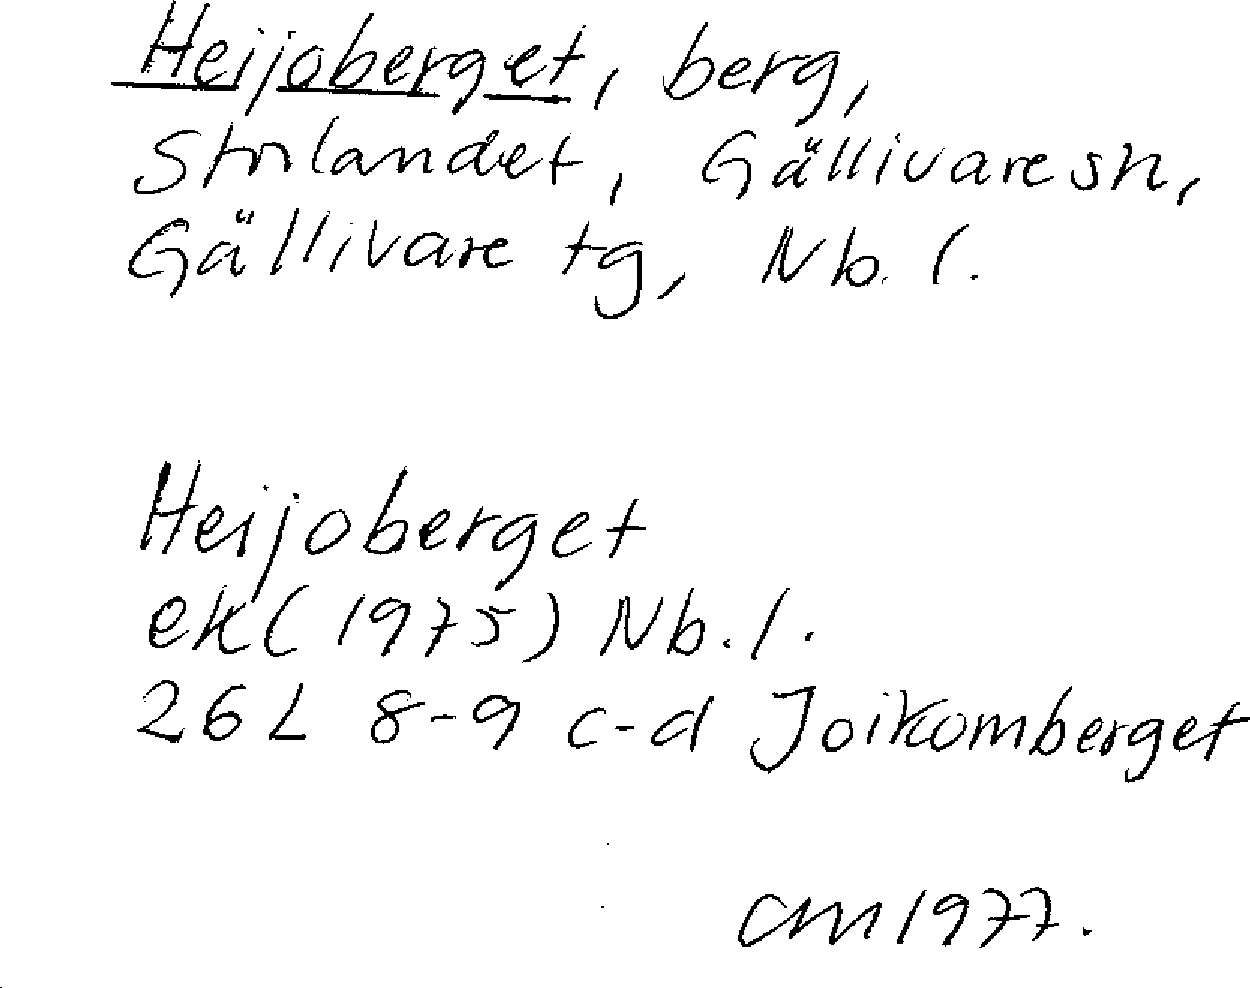 Heijoberget, berg,
Storlandet, Gällivare sn,
Gällivare tg, Nb. l.
Heijoberget
ek (1975) Nb. l.
26L 8-9 c-d Joikomberget
CM 1977.